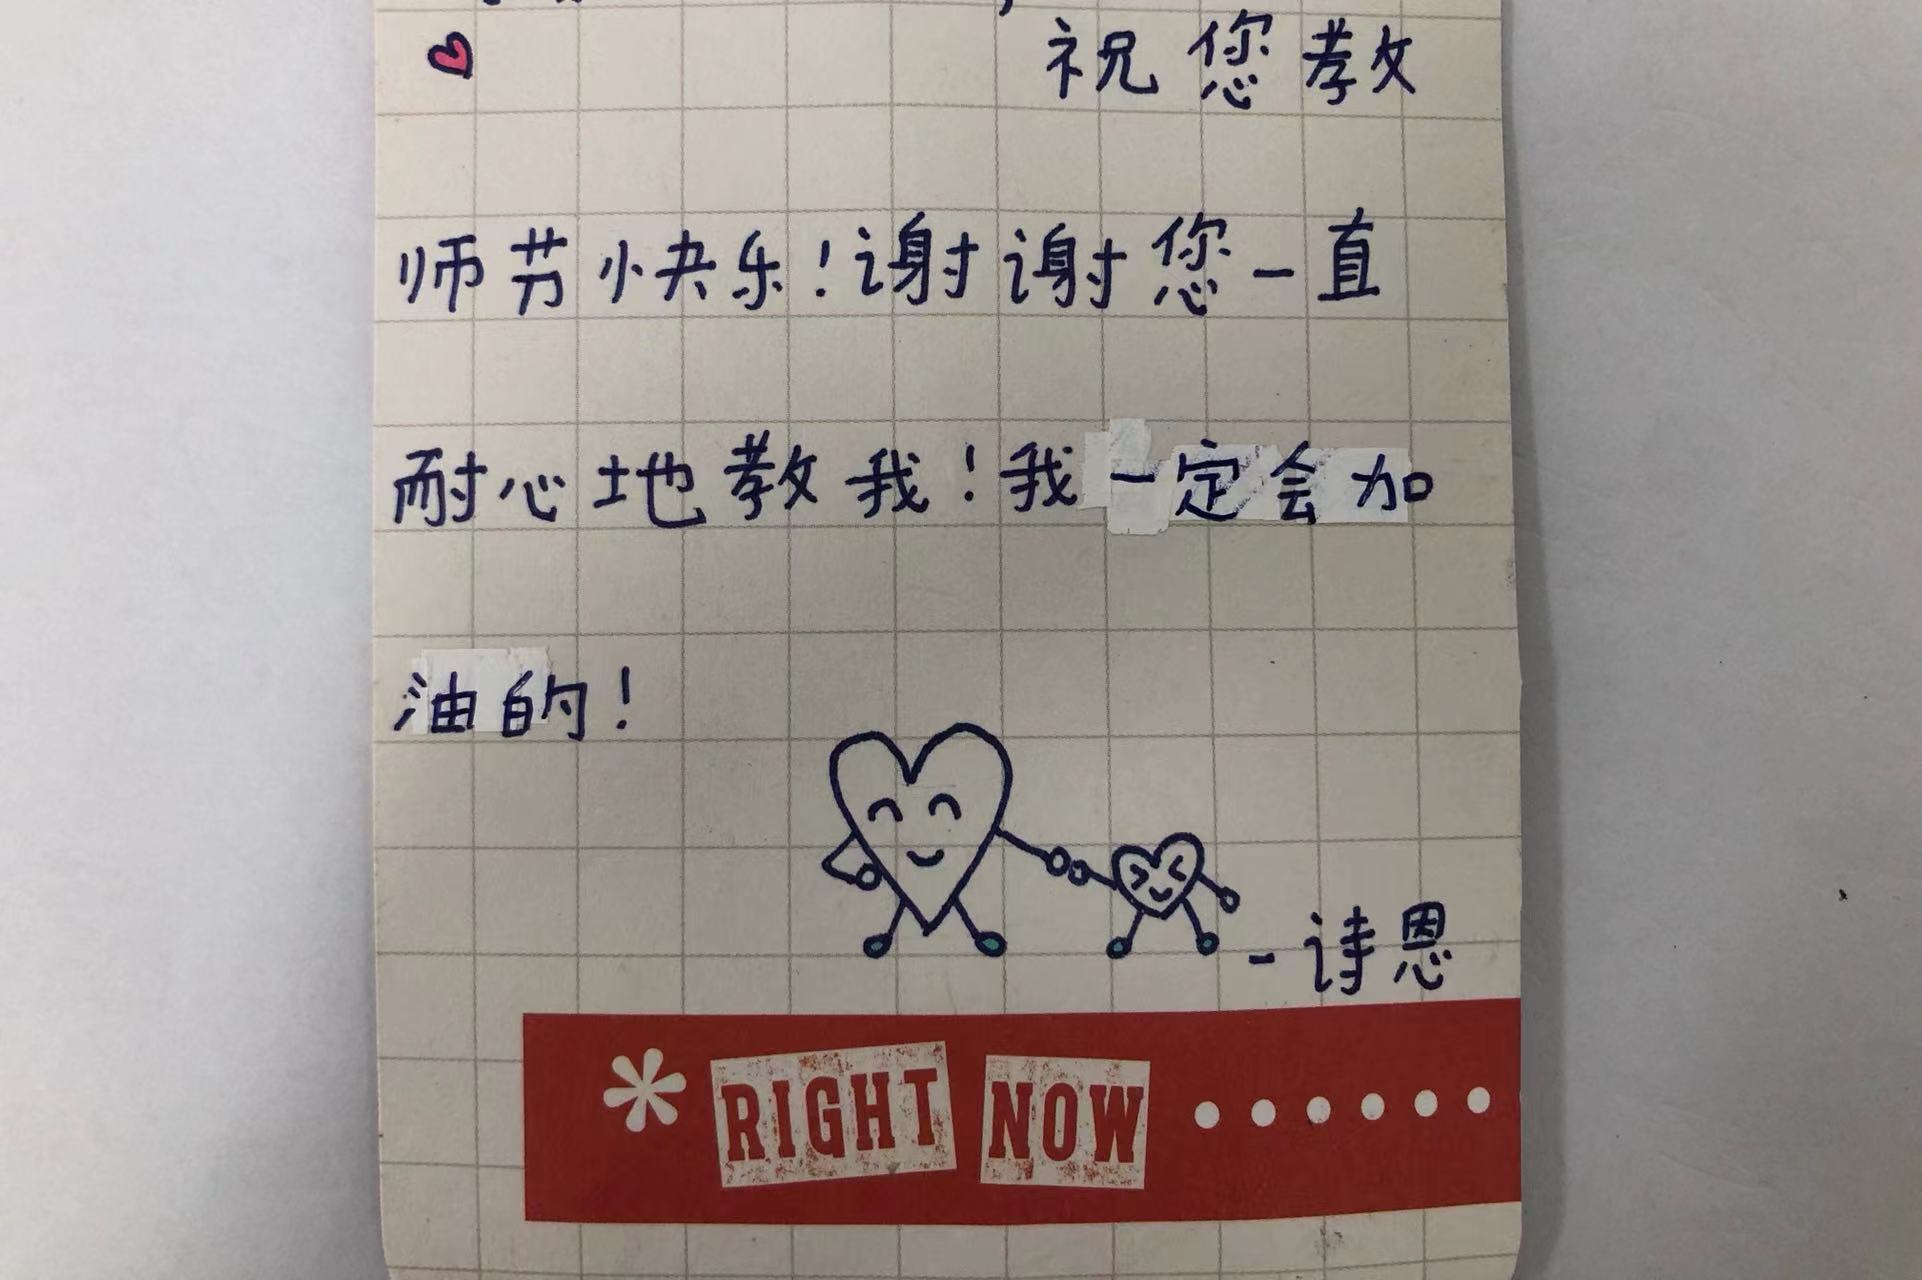 祝您教
师节快乐！谢谢您一直
耐心地教我！我一定会加
油的！
-诗恩
RIGHT NOW